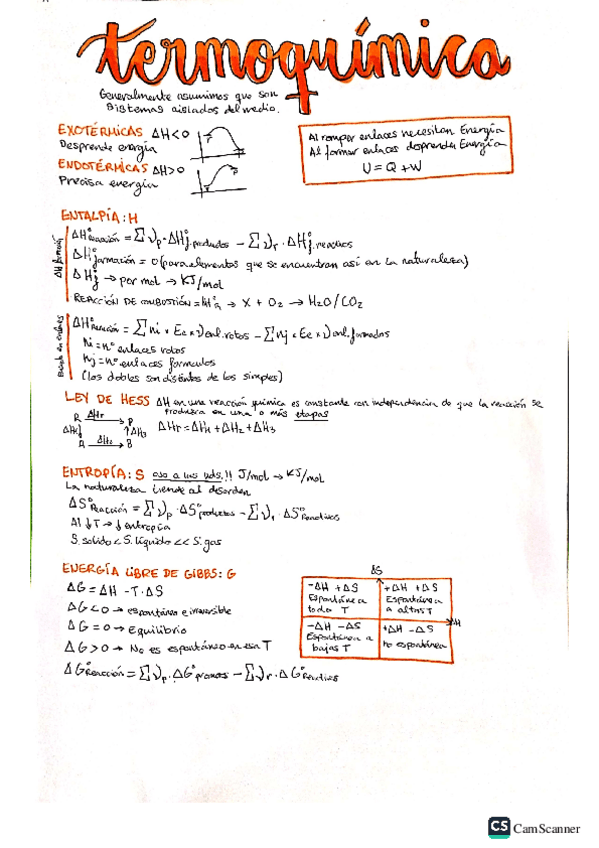 termoquímica
Generalmente asumimos que son
sistemas aislados del medio.
EXOTÉRMICAS ΔH<0
Desprende energía
ENDOTÉRMICAS ΔH>0
Precisa energía
Al romper enlaces necesitan Energía
Al formar enlaces desprenden Energía
U = Q + W
ENTALPÍA: H
ΔH formación
ΔH°reacción = Σνp·ΔH°f productos − Σνr·ΔH°f reactivos
ΔH°formación = 0 (para elementos que se encuentran así en la naturaleza)
ΔH°f → por mol → KJ/mol
REACCIÓN DE COMBUSTIÓN = → X + O2 → H2O/CO2
enlaces
ΔH°Reacción = Σni × Ee × ν enl. rotos − Σnj × Ee × ν enl. formados
Ni = nº enlaces rotos
Nj = nº enlaces formados
(los dobles son distintos de los simples)
LEY DE HESS ΔH en una reacción química es constante con independencia de que la reacción se
produzca en una o más etapas
R ΔHr → P
ΔH1↓ ↑ΔH3
A ΔH2 → B
ΔHr = ΔH1 + ΔH2 + ΔH3
ENTROPÍA: S ojo a las uds.!! J/mol → KJ/mol
La naturaleza tiende al desorden
ΔS°Reacción = Σνp·ΔS°productos − Σνr·ΔS°Reactivos
Al ↓T → ↓entropía
S. solido < S. líquido << S. gas
ENERGÍA LIBRE DE GIBBS: G
ΔG = ΔH − T·ΔS
ΔG<0 → espontánea e irreversible
ΔG = 0 → equilibrio
ΔG > 0 → No es espontáneo en esa T
ΔG°Reacción = Σνp·ΔG° − Σνr·ΔG°Reactivos
ΔS
ΔH
−ΔH +ΔS
Espontánea a
todo T
+ΔH +ΔS
Espontánea
a altas T
−ΔH −ΔS
Espontánea a
bajas T
+ΔH −ΔS
no espontánea
CS CamScanner